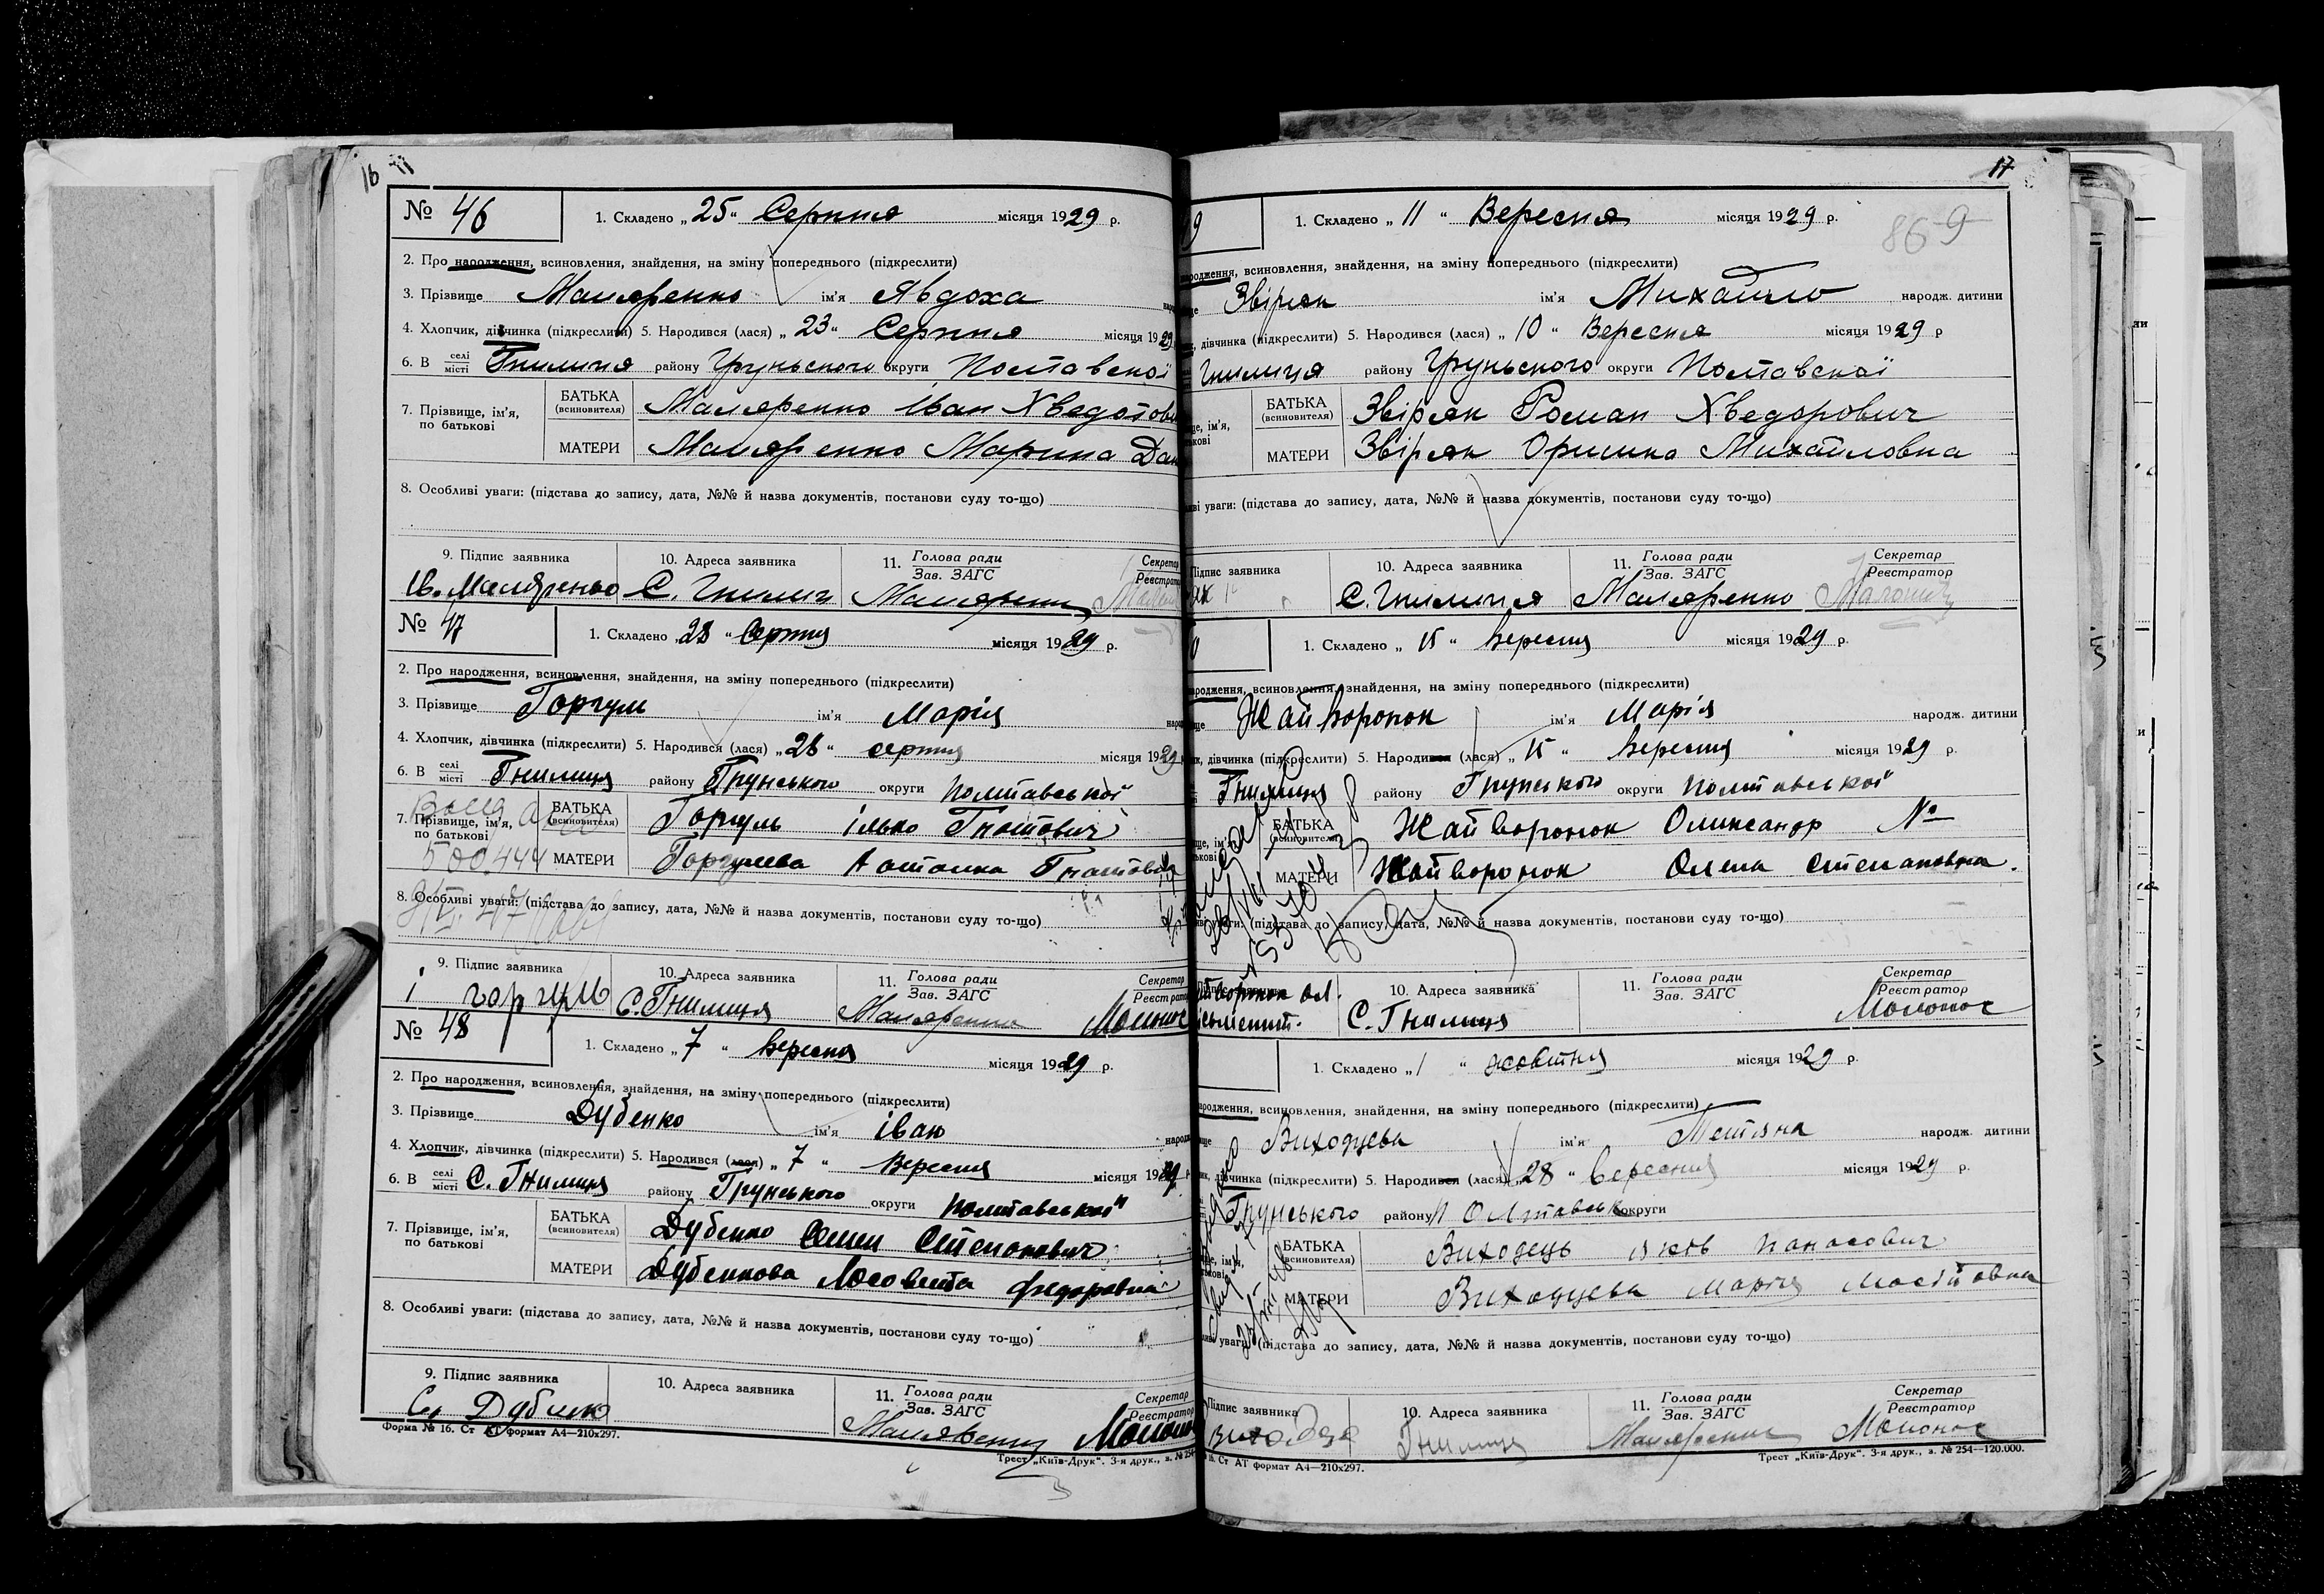 16
№ 46
1. Складено „25“ Серпня місяця 1929 р.
2. Про народження, всиновлення, знайдення, на зміну попереднього (підкреслити)
3. Прізвище Маляренко ім'я Явдоха
4. Хлопчик, дівчинка (підкреслити) 5. Народився (лася) „23“ Серпня місяця 1929
6. В селі місті Гнилиця району Груньского округи Полтавскої
7. Прізвище, ім'я, по батькові
БАТЬКА (всиновителя) Маляренко Іван Хведотови
МАТЕРИ Маляренко Марина Дан
8. Особливі уваги: (підстава до запису, дата, №№ й назва документів, постанови суду то-що)
9. Підпис заявника 10. Адреса заявника 11. Голова ради Зав. ЗАГС Секретар Реєстратор
Ів. Маляренко С. Гнилиц Маляренко
№ 47
1. Складено „28“ Серпня місяця 1929 р.
2. Про народження, всиновлення, знайдення, на зміну попереднього (підкреслити)
3. Прізвище Горгуль ім'я Марія
4. Хлопчик, дівчинка (підкреслити) 5. Народився (лася) „28“ серпня місяця 1929
6. В селі місті Гнилиця району Грунського округи Полтавської
7. Прізвище, ім'я, по батькові
БАТЬКА (всиновителя) Горгуль ілько Гнатович
500444
МАТЕРИ Горгулева Гнатовн
8. Особливі уваги: (підстава до запису, дата, №№ й назва документів, постанови суду то-що)
9. Підпис заявника 10. Адреса заявника 11. Голова ради Зав. ЗАГС Секретар Реєстратор
і горгуль С. Гнилиця Маляренко
№ 48
1. Складено „7“ Вересня місяця 1929 р.
2. Про народження, всиновлення, знайдення, на зміну попереднього (підкреслити)
3. Прізвище Дубенко ім'я іван
4. Хлопчик, дівчинка (підкреслити) 5. Народився (лася) „7“ Вересня місяця 1929
6. В селі місті С. Гнилиця району Грунського округи Полтавської
7. Прізвище, ім'я, по батькові
БАТЬКА (всиновителя) Дубенко Семен Степанович
МАТЕРИ Дубенкова Лосовета федоровна
8. Особливі уваги: (підстава до запису, дата, №№ й назва документів, постанови суду то-що)
9. Підпис заявника 10. Адреса заявника 11. Голова ради Зав. ЗАГС Секретар Реєстратор
Маляренко
Форма № 16. Ст АТ формат А4—210х297.
Трест „Київ-Друк“. 3-я друк., з. № 254
17
869
9
1. Складено „11“ Вересня місяця 1929 р.
народження, всиновлення, знайдення, на зміну попереднього (підкреслити)
Звіряк ім'я Михайло народж. дитини
дівчинка (підкреслити) 5. Народився (лася) „10“ Вересня місяця 1929 р
Гнилиця району Груньского округи Полтавскої
БАТЬКА (всиновителя) Звіряк Роман Хведорович
МАТЕРИ Звіряк Оришка Михайловна
уваги: (підстава до запису, дата, №№ й назва документів, постанови суду то-що)
Підпис заявника 10. Адреса заявника 11. Голова ради Зав. ЗАГС Секретар Реєстратор
С. Гнилиця Маляренко
0
1. Складено „15“ Вересня місяця 1929 р.
народження, всиновлення, знайдення, на зміну попереднього (підкреслити)
Жайворонок ім'я Марія народж. дитини
дівчинка (підкреслити) 5. Народився (лася) „15“ Вересня місяця 1929 р.
Гнилиця району Грунського округи Полтавської
БАТЬКА (всиновителя) Жайворонок Олександр №
МАТЕРИ Жайворонок Олена Степановна.
уваги: (підстава до запису, дата, №№ й назва документів, постанови суду то-що)
10. Адреса заявника 11. Голова ради Зав. ЗАГС Секретар Реєстратор
С. Гнилиця
1. Складено „1“ жовтня місяця 1929 р.
народження, всиновлення, знайдення, на зміну попереднього (підкреслити)
Виходцева ім'я Тетяна народж. дитини
дівчинка (підкреслити) 5. Народився (лася) „28“ вересня місяця 1929 р.
Грунського району Полтавськ округи
БАТЬКА (всиновителя) Виходець яків Панасович
МАТЕРИ Виходцева Марія
уваги: (підстава до запису, дата, №№ й назва документів, постанови суду то-що)
Підпис заявника 10. Адреса заявника 11. Голова ради Зав. ЗАГС Секретар Реєстратор
Гнилиця Маляренко
16. Ст АТ формат А4—210х297.
Трест „Київ-Друк“. 3-я друк., з. № 254—120.000.